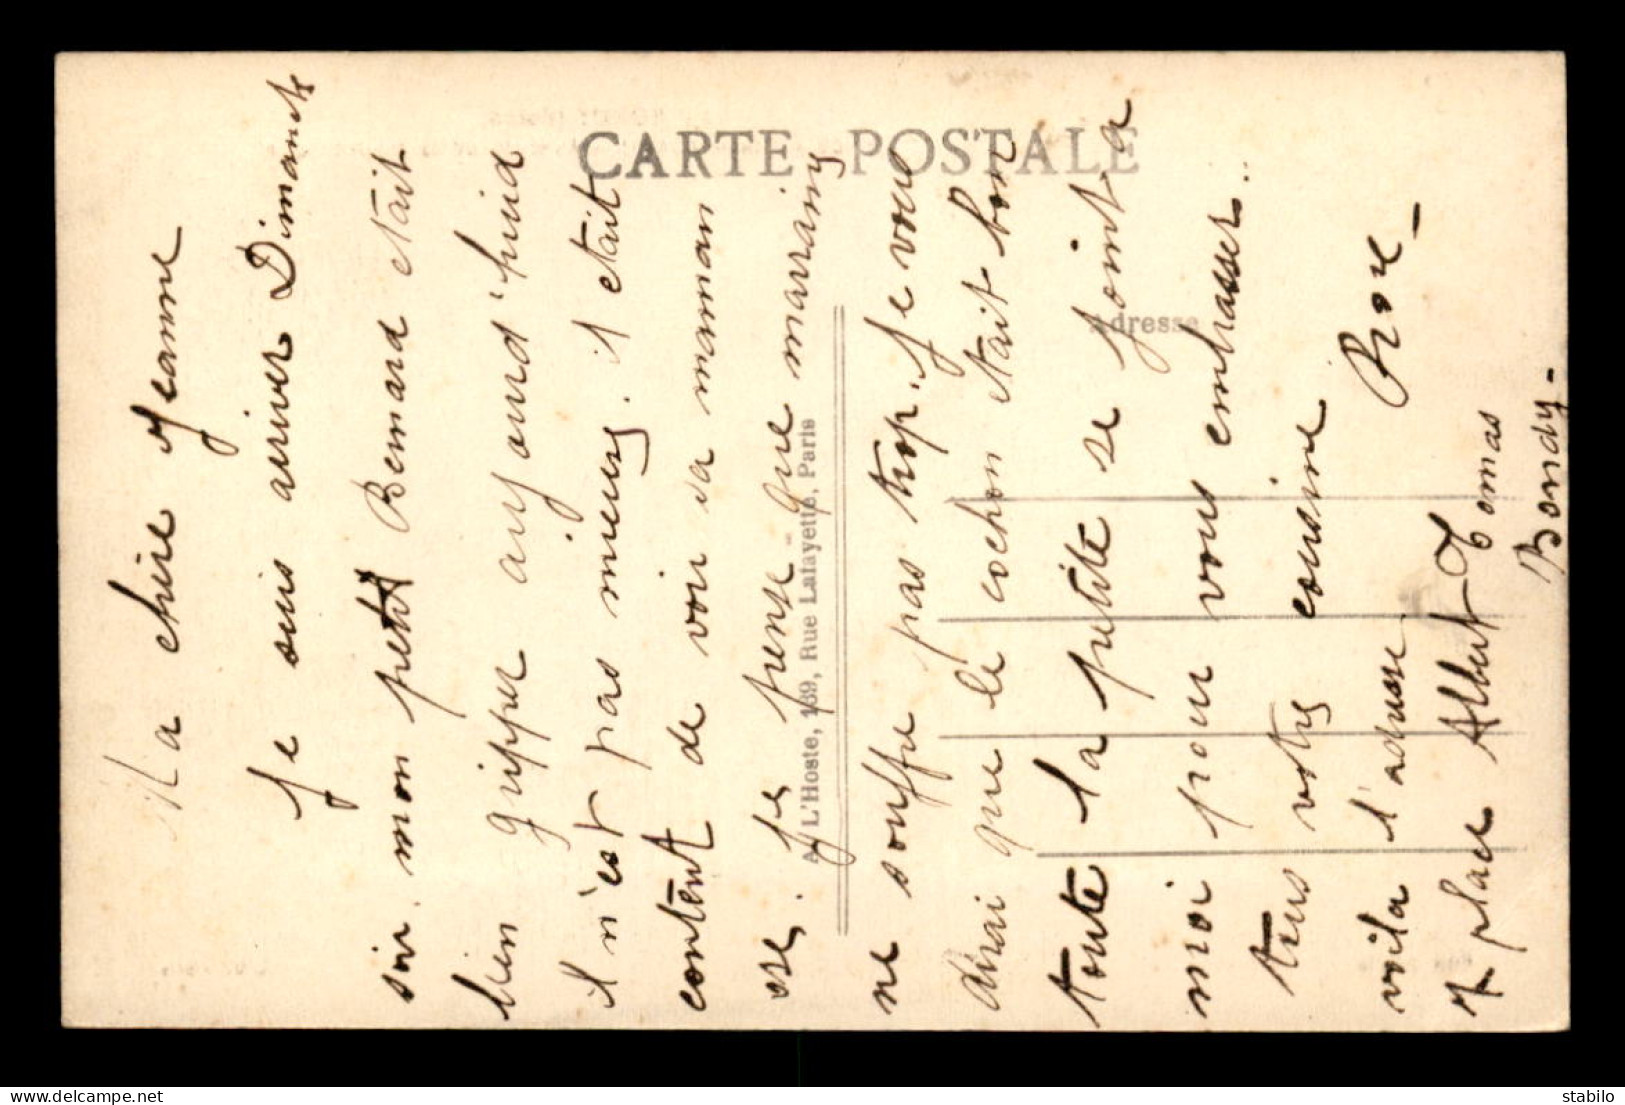 CARTE POSTALE
Adresse
A. L'Hoste, 139, Rue Lafayette, Paris
Ma chère Jeanne
Je suis arriver Dimanche
soir. mon petit Bernard etait
bien gripper aujourd'huid
il n'est pas mieux. il etait
content de voir sa maman
Je pense que marrainy
ne souffre pas trop. Je vous
dirai que le cochon etait bon
toute la petite se joint a
moi pour vous embrasser..
votry cousine
Rose
voila l'adresse
7 place Albert Tomas
Bondy-
stabilo
www.delcampe.net